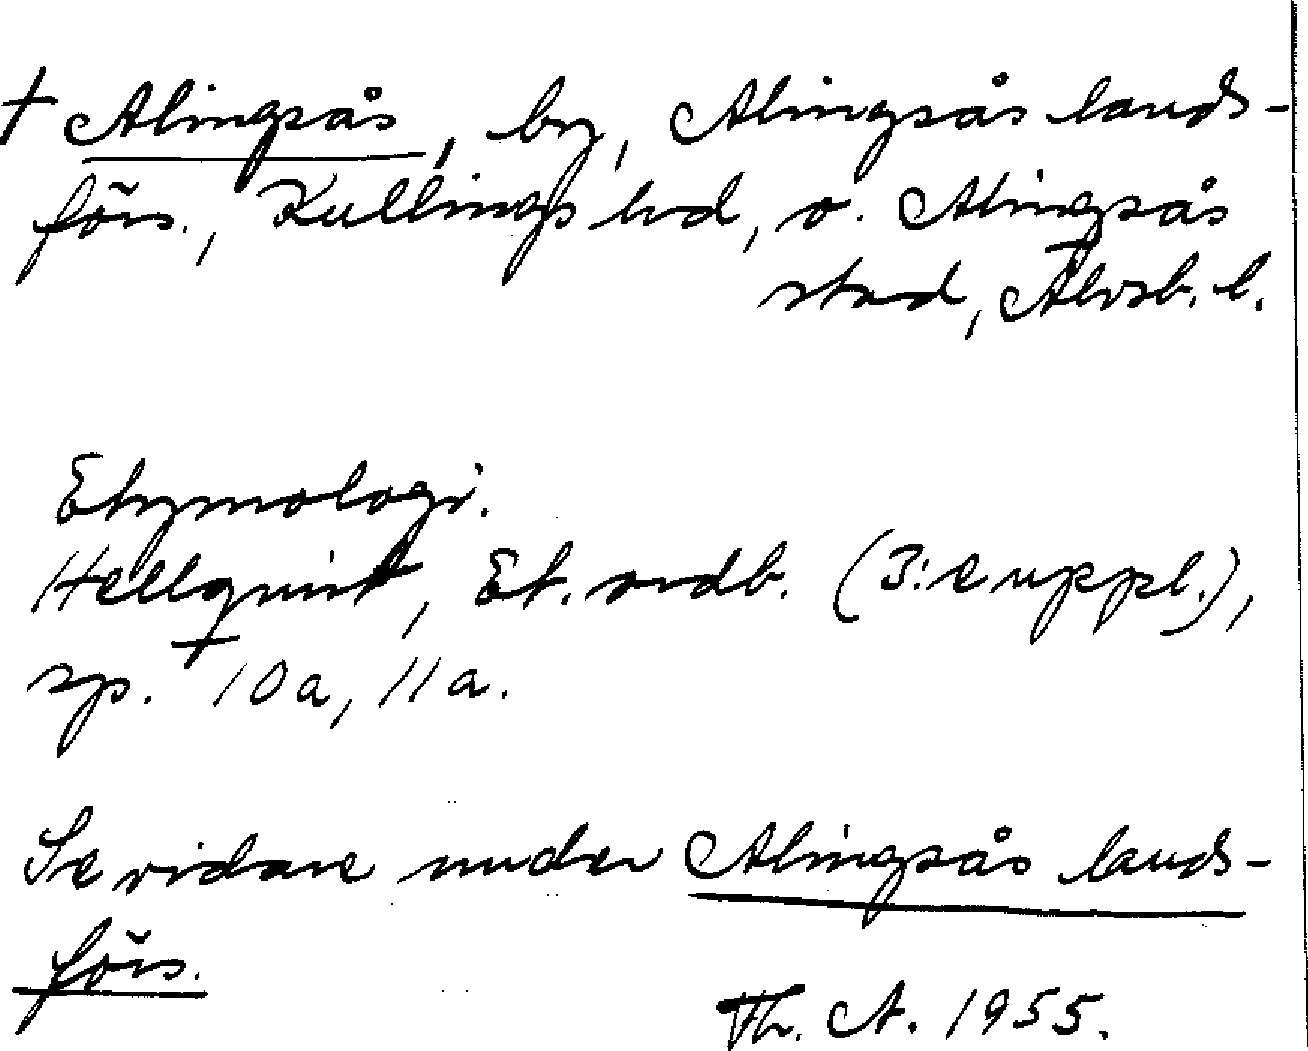 † Alingsås, by, Alingsås lands-
förs., Kullings hd, o. Alingsås
stad, Älvsb. l.
Etymologi.
Hellquist, Et. ordb. (3:e uppl.),
sp. † 10a, 11a.
Se vidare under Alingsås lands-
förs.
Th. A. 1955.